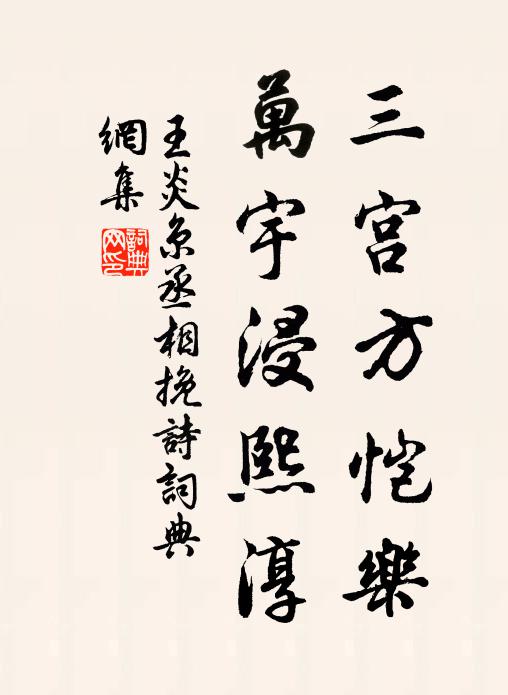 三宮方愷樂
萬宇浸熙淳
王炎京丞相挽詩詞典
網集
詞典網印